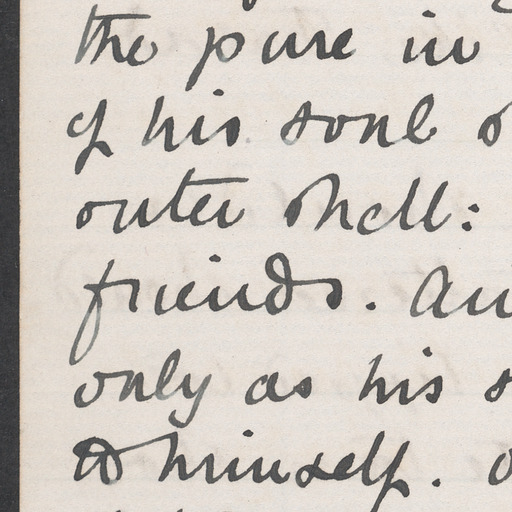 the pure in
of his soul
outer shell:
friends.
only as his
to himself.